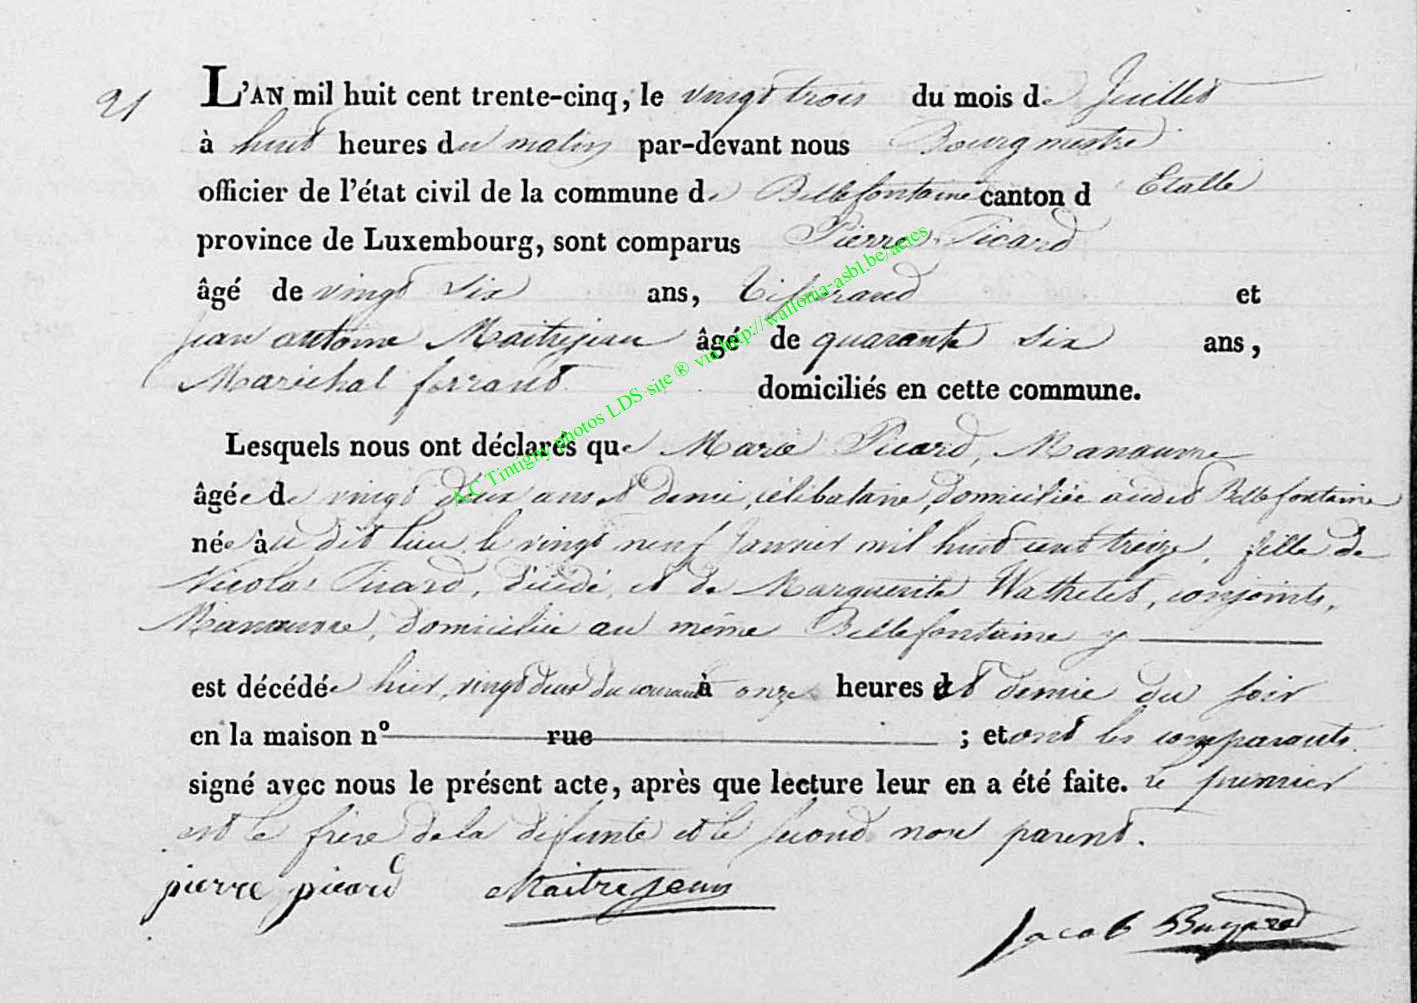 21
L'AN mil huit cent trente-cinq, le vingt trois du mois de Juillet
à huit heures du matin par-devant nous Bourgmestre
officier de l'état civil de la commune de Bellefontaine canton d Etalle
province de Luxembourg, sont comparus Pierre Picard
âgé de vingt six ans, Tisserand et
Jean antoine Maitrejean âgé de quarante six ans,
Maréchal ferrant domiciliés en cette commune.
Lesquels nous ont déclarés que Marie Picard, Manœuvre
âgée de vingt deux ans et demi, célibataire, domiciliée audit Bellefontaine
née à u dit lieu le vingt neuf Janvier mil huit cent treize, fille de
Nicolas Picard, décédé, et de Marguerite Wathelet, conjoints,
Manœuvre, domiciliée au même Bellefontaine y
est décédée hier, vingt deux du courant à onze heures et demie du soir
en la maison nº rue ; et ont les comparants
signé avec nous le présent acte, après que lecture leur en a été faite. le premier
est le frère de la défunte et le second non parent.
pierre picard Maitrejean
Jacob
A.C Tintigny photos LDS site ® via http://wallonia-asbl.be/actes